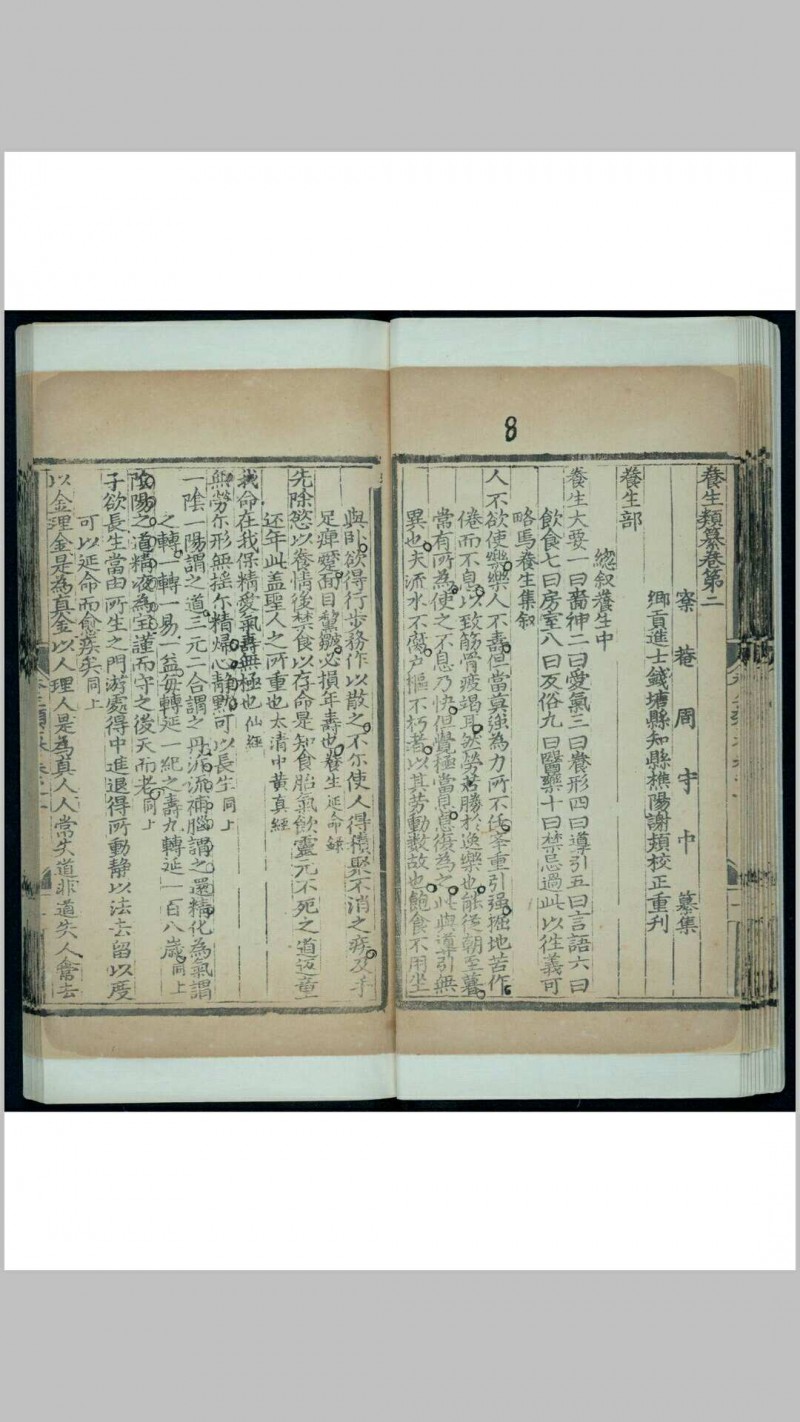 8
養生類纂卷第二
寀菴周守中纂集
鄉貢進士錢塘縣知縣樵陽謝頍校正重刊
養生部
總叙養生中
養生大要一曰嗇神二曰愛氣三曰養形四曰導引五曰言語六曰
飲食七曰房室八曰反俗九曰醫藥十曰禁忌過此以往義可
略焉養生集叙
人不欲使樂樂人不壽但當莫強為力所不任舉重引强掘地苦作
倦而不息以致筋骨疲竭耳然勞苦勝於逸樂也能從朝至暮
常有所為使之不息乃快但覺極當息息復為之此與導引無
異也夫流水不腐户樞不朽者以其勞動數故也飽食不用坐
與卧欲得行步務作以散之不尓使人得積聚不消之疾及手
足痺蹙面目黧皺必損年壽也養生延命錄
先除慾以養情後禁食以存命是知食胎氣飲靈元不死之道返童
还年此盖聖人之所重也太清中黄真經
我命在我保精愛氣壽無極也仙經
無勞尓形無摇尓精歸心靜黙可以長生同上
一陰一陽謂之道三元二合謂之丹泝流補腦謂之還精化為氣謂
之轉一轉一易一益每轉延一紀之壽九轉延一百八歲同上
陰陽之道精液為宝謹而守之後天而老同上
子欲長生當由所生之門游處得中進退得所動静以法去留以度
可以延命而愈疾矣同上
以金理金是為真金以人理人是為真人人常失道非道失人人嘗去